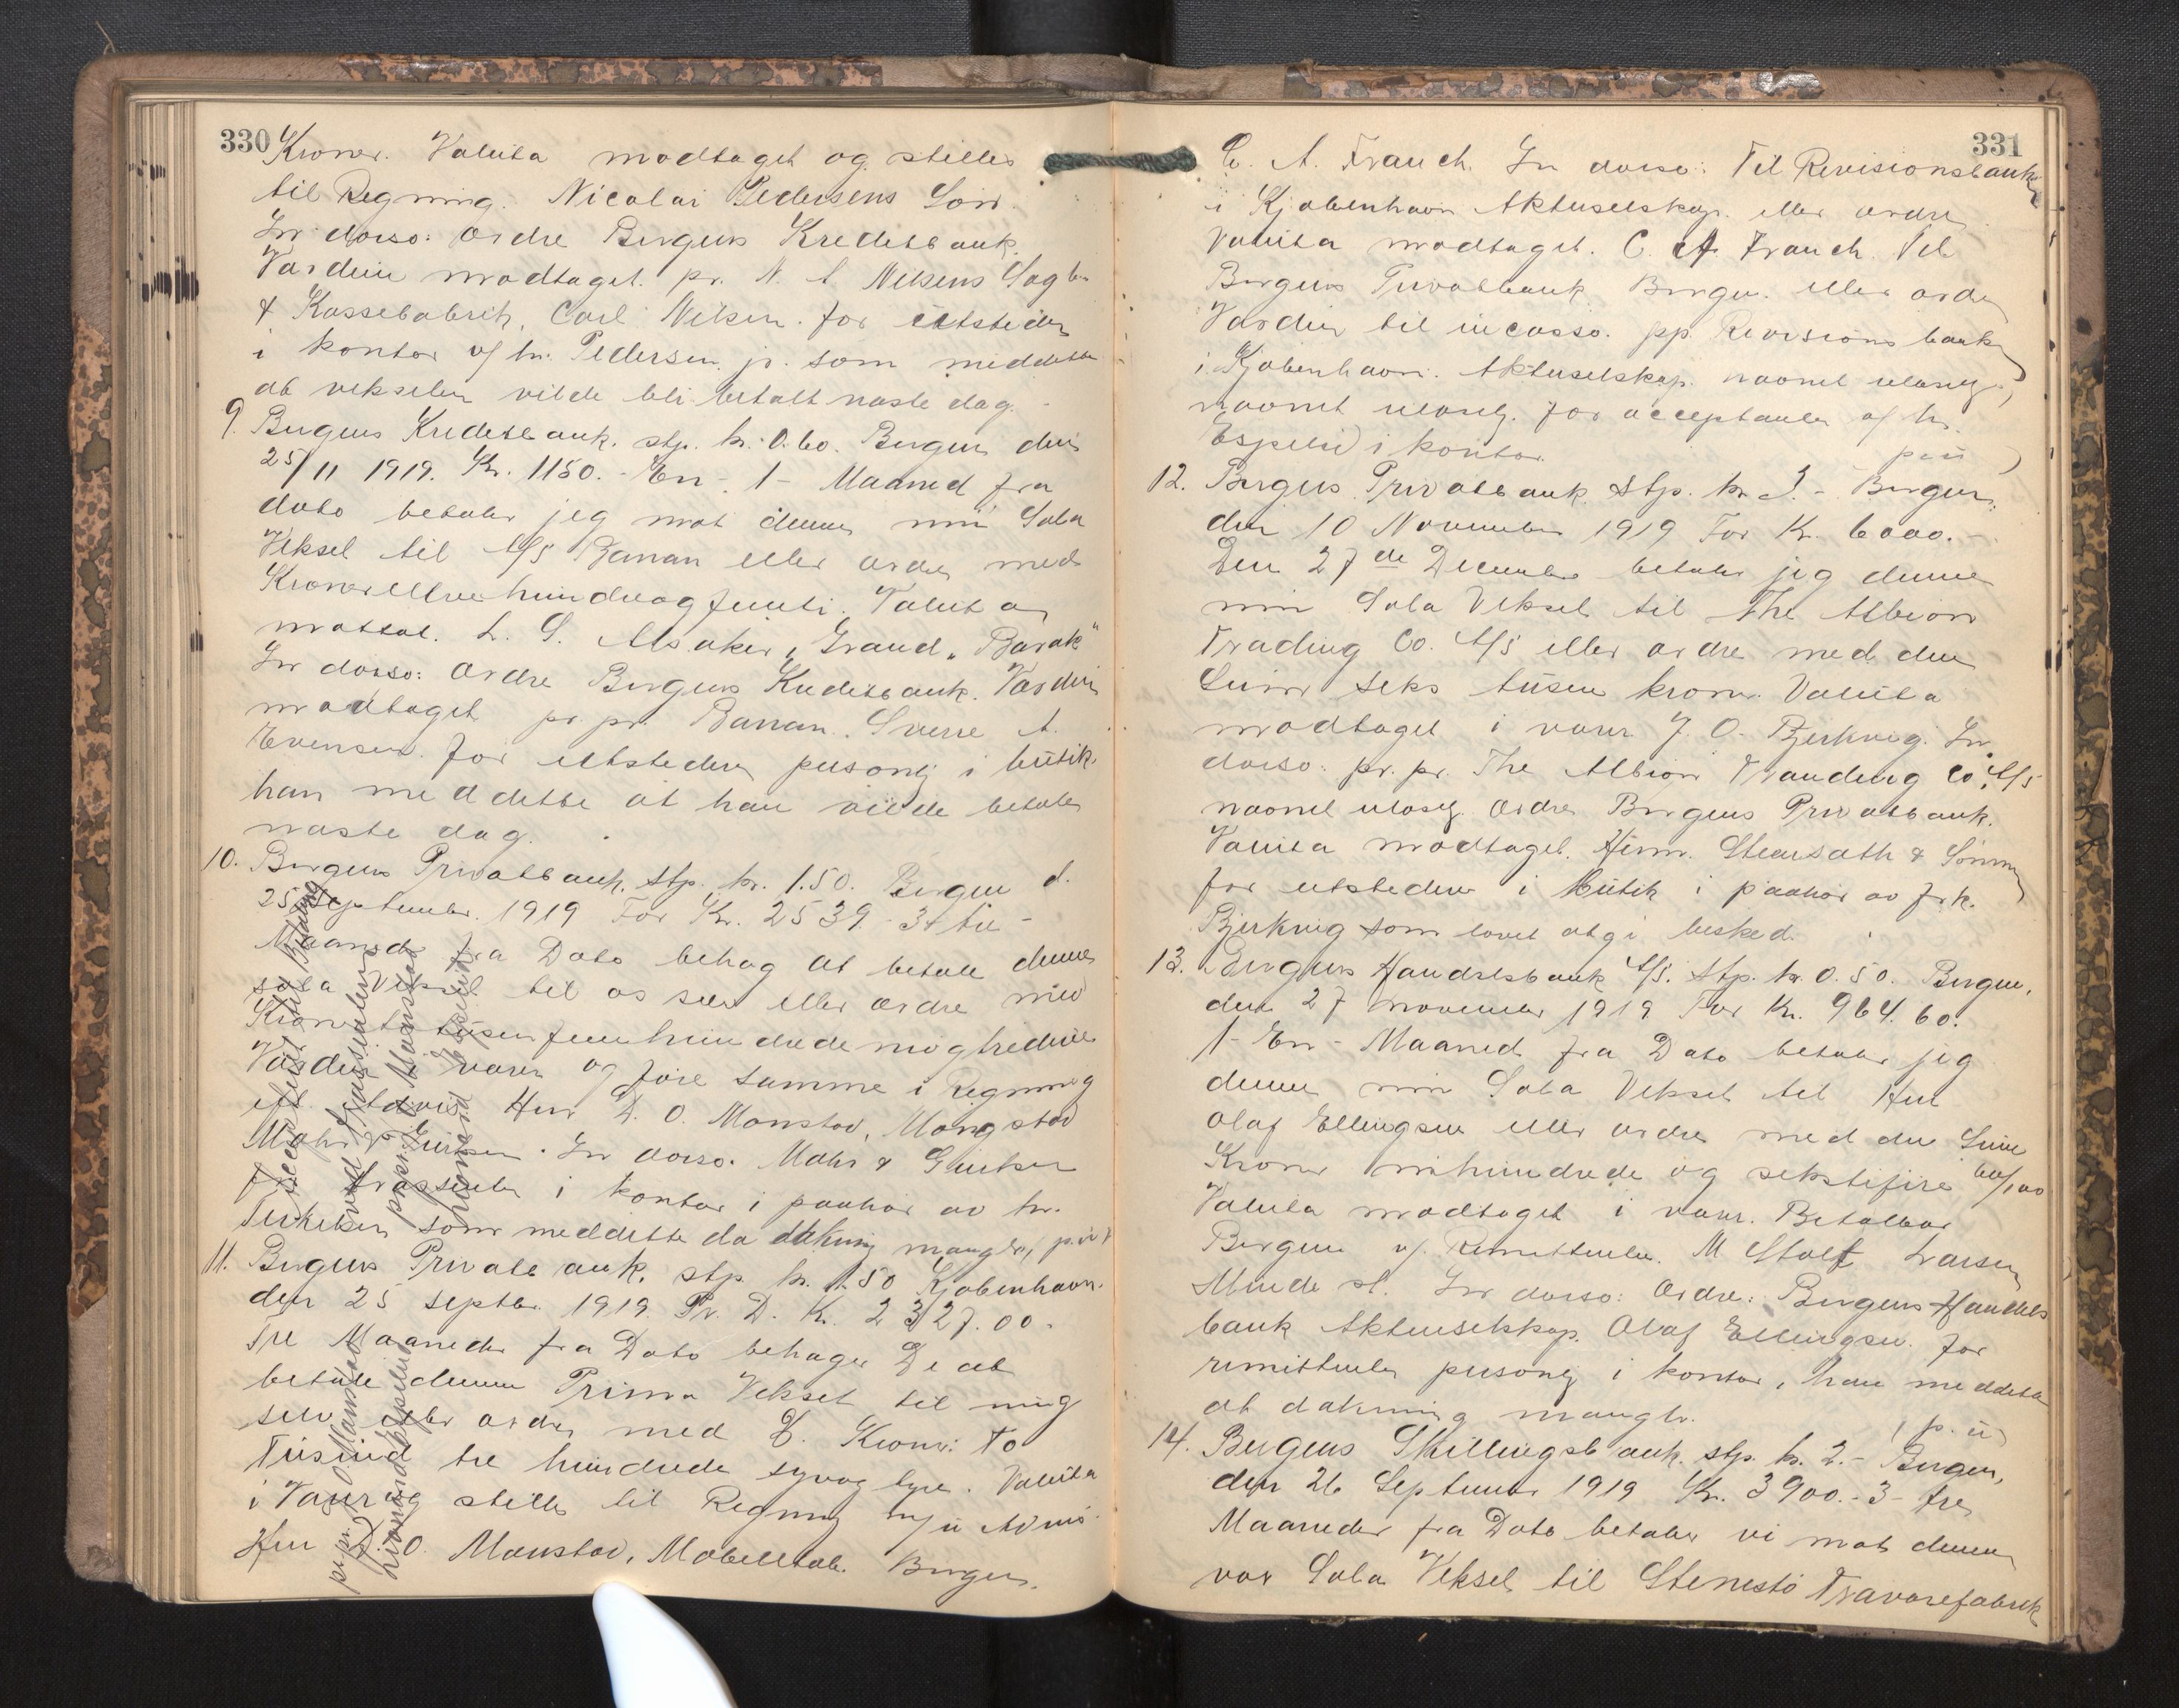 330
Kroner. Valuta modtaget og stilles
til Regning. Nicolai Pedersens Søn.
In dorso: Ordre Bergens Kreditbank.
Værdien modtaget. pr. N. A. Nilsens Sagb.
& Kassefabrik, Carl Nilsen. for utstederen
i kontor v/ hr. Pedersen jr. som meddelte
at vekselen vilde bli betalt næste dag.
9. Bergens Kreditbank. stp. kr. 0.60. Bergen den
25/11 1919. Kr. 1150.- En - 1 - Maaned fra
dato betaler jeg mot denne min Sola
Veksel til A/S Banan eller ordre med
Kroner ellevehundredeogfemti. Valuta
mottat. L. S. Alsaker, "Grand" Barak"
In dorso: Ordre Bergens Kreditbank. Værdien
modtaget pr. pr. Banan. Sverre A.
Evensen. for utstederen personlig i butik.
han meddelte at han vilde betale
næste dag.
10. Bergens Privatbank. stp. kr. 1.50. Bergen d.
25 September 1919 For Kr. 2539.- 3 tre -
Maaneder fra Dato behag at betale denne
sola Veksel til os selv eller ordre med
Kroner totusenfemhundredeniogtredive
Værdien i varer og føre samme i Regning
eft. Advis Herr D. O. Monstad, Mongstad
Mohr & Giertsen. In dorso. Mohr & Giertsen
for trassenten i kontor i paahør av hr.
Terkelsen som meddelte da dækning mangler, p.u.
11. Bergens Privatbank. stp. kr. 1.50 Kjøbenhavn.
den 25 Septbr. 1919. Pr. D. K. 2327.00.
Tre Maaneder fra Dato behager De at
betale denne Prima Veksel til mig
selv eller ordre med D. Kroner: To
Tusind tre hundrede syvogtyve. Valuta
i Varer og stilles til Regning m/u Advis.
Herr D. O. Monstad, Møbelfab. Bergen.
pr. pr. D. O. Monstad
Hromund Espelid
331
C. A. Franch. In dorso: Til Revisionsbanken
i Kjøbenhavn Aktieselskap. eller ordre
Valuta modtaget. C. A. Franch. Til
Bergens Privatbank Bergen. eller ordre
Værdien til incasso. pp. Revisionsbanken
i Kjøbenhavn. Aktieselskap. navnet ulæselig,
navnet ulæselig. for acceptanten v/ hr.
Espelid i kontor.
p.u.
12. Bergens Privatbank. Stp. kr 3.- Bergen,
den 10 November 1919 For Kr. 6000.-
Den 27de December betaler jeg denne
min Sola Veksel til The Albion
Trading Co. A/S eller ordre med den
Sum seks tusen kroner. Valuta
modtaget i varer J. O. Bjerkvig. In
dorso: pr. pr. The Albion Trauding Co. A/S
navnet ulæselig. Ordre Bergens Privatbank.
Valuta modtaget. Herm. & Sønner
for utstederen i butik i paahør av frk.
Bjerkvig som lovet at gi besked.
13. Bergens Handelsbank A/S. stp. kr. 0.50. Bergen,
den 27 november 1919 For Kr. 964.60.
1 - En - Maaned fra Dato betaler jeg
denne min Sola Veksel til Herr
Olaf Ellingsen eller ordre med den Sum
Kroner nihundrede og sekstifire 60/100
Valuta modtaget i varer. Betalbar
Bergen v/ Remittenten. M Larsen
Minde st. In dorso: Ordre: Bergens Handels
bank Aktieselskap. Olaf Ellingsen. for
remittenten personlig i kontor, han meddelte
at dækning mangler.
(p.u)
14. Bergens Skillingsbank. stp. kr. 2.- Bergen,
den 26 September 1919 Kr. 3900.- 3 - tre
Maaneder fra Dato betaler vi mot denne
vor Sola Veksel til Stenestø Trævarefabrik